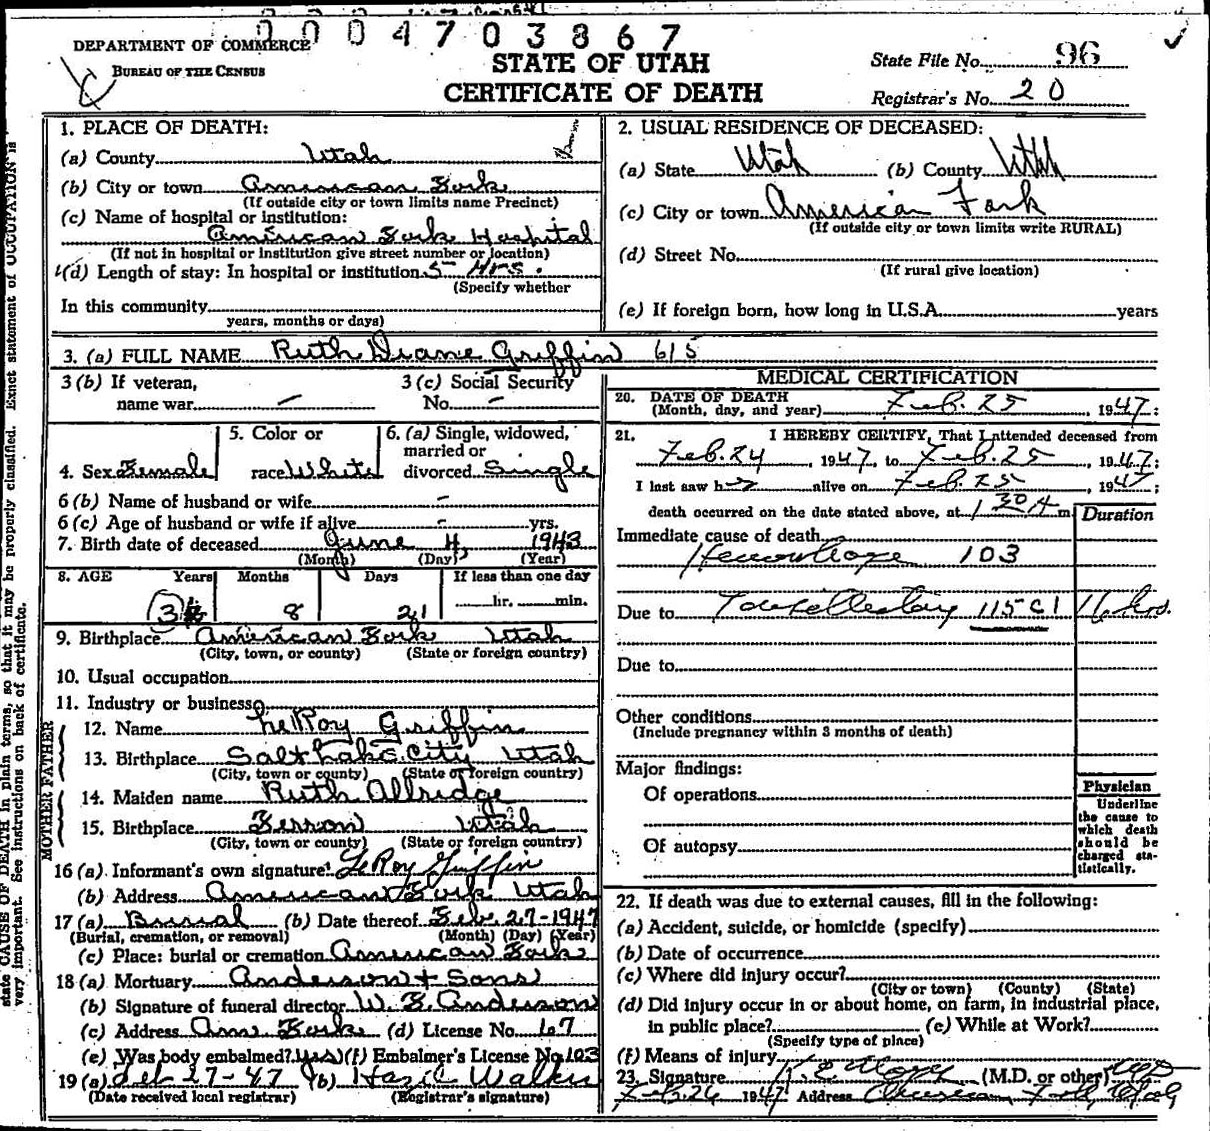 0004703867
DEPARTMENT OF COMMERCE
BUREAU OF THE CENSUS
STATE OF UTAH
CERTIFICATE OF DEATH
State File No. 96
Registrar's No. 20
state CAUSE OF DEATH in plain terms, so that it may be properly classified. Exact statement of OCCUPATION is
very important. See instructions on back of certificate.
1. PLACE OF DEATH:
(a) County Utah
(b) City or town American Fork
(If outside city or town limits name Precinct)
(c) Name of hospital or institution:
American Fork Hospital
(If not in hospital or institution give street number or location)
(d) Length of stay: In hospital or institution 5 Hrs.
(Specify whether
In this community
years, months or days)
2. USUAL RESIDENCE OF DECEASED:
(a) State Utah (b) County Utah
(c) City or town American Fork
(If outside city or town limits write RURAL)
(d) Street No.
(If rural give location)
(e) If foreign born, how long in U.S.A. years
3. (a) FULL NAME Ruth Diane Griffin 615
3 (b) If veteran, name war -
3 (c) Social Security No. -
4. Sex Female
5. Color or race White
6. (a) Single, widowed, married or divorced Single
6 (b) Name of husband or wife -
6 (c) Age of husband or wife if alive - yrs.
7. Birth date of deceased June 4, 1943
(Month) (Day) (Year)
8. AGE Years Months Days If less than one day
3 8 21 hr. min.
9. Birthplace American Fork Utah
(City, town, or county) (State or foreign country)
10. Usual occupation
11. Industry or business
FATHER
12. Name LeRoy Griffin
13. Birthplace Salt Lake City Utah
(City, town or county) (State or foreign country)
MOTHER
14. Maiden name Ruth Allredge
15. Birthplace Ferron Utah
(City, town or county) (State or foreign country)
16 (a) Informant's own signature LeRoy Griffin
(b) Address American Fork Utah
17 (a) Burial (b) Date thereof Feb. 27-1947
(Burial, cremation, or removal) (Month) (Day) (Year)
(c) Place: burial or cremation American Fork
18 (a) Mortuary Anderson + Sons
(b) Signature of funeral director W. E. Anderson
(c) Address Am. Fork (d) License No. 67
(e) Was body embalmed? Yes (f) Embalmer's License No. 103
19 (a) Feb 27-47 (b) Hazel Walker
(Date received local registrar) (Registrar's signature)
MEDICAL CERTIFICATION
20. DATE OF DEATH
(Month, day, and year) Feb. 25, 1947:
21. I HEREBY CERTIFY, That I attended deceased from
Feb. 24, 1947, to Feb. 25, 1947;
I last saw her alive on Feb. 25, 1947;
death occurred on the date stated above, at 1 30 A m
Duration
Immediate cause of death
Hemorrhage 103
Due to Tonsillectomy 115 c1 16 hrs.
Due to
Other conditions
(Include pregnancy within 3 months of death)
Major findings:
Of operations
Of autopsy
Physician
Underline the cause to which death should be charged statistically.
22. If death was due to external causes, fill in the following:
(a) Accident, suicide, or homicide (specify)
(b) Date of occurrence
(c) Where did injury occur?
(City or town) (County) (State)
(d) Did injury occur in or about home, on farm, in industrial place,
in public place? (e) While at Work?
(Specify type of place)
(f) Means of injury
23. Signature (M.D. or other) MD
Feb. 26 1947 Address American Fork, Utah